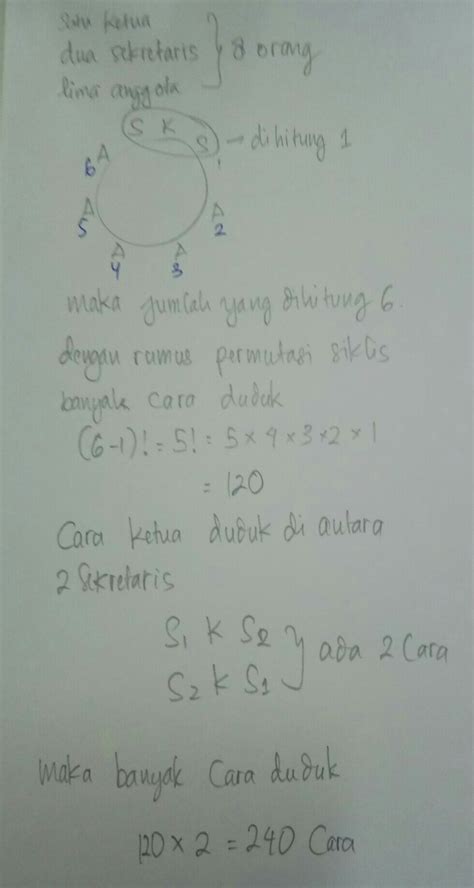 satu ketua
dua sekretaris } 8 orang
lima anggota
S K S → dihitung 1
A 6
A 5
A 4
A 3
A 2
maka jumlah yang dihitung 6.
dengan rumus permutasi siklis
banyak cara duduk
(6-1)! = 5! = 5 × 4 × 3 × 2 × 1
= 120
Cara ketua duduk di antara
2 Sekretaris
S₁ K S₂ } ada 2 Cara
S₂ K S₁
maka banyak Cara duduk
120 × 2 = 240 Cara